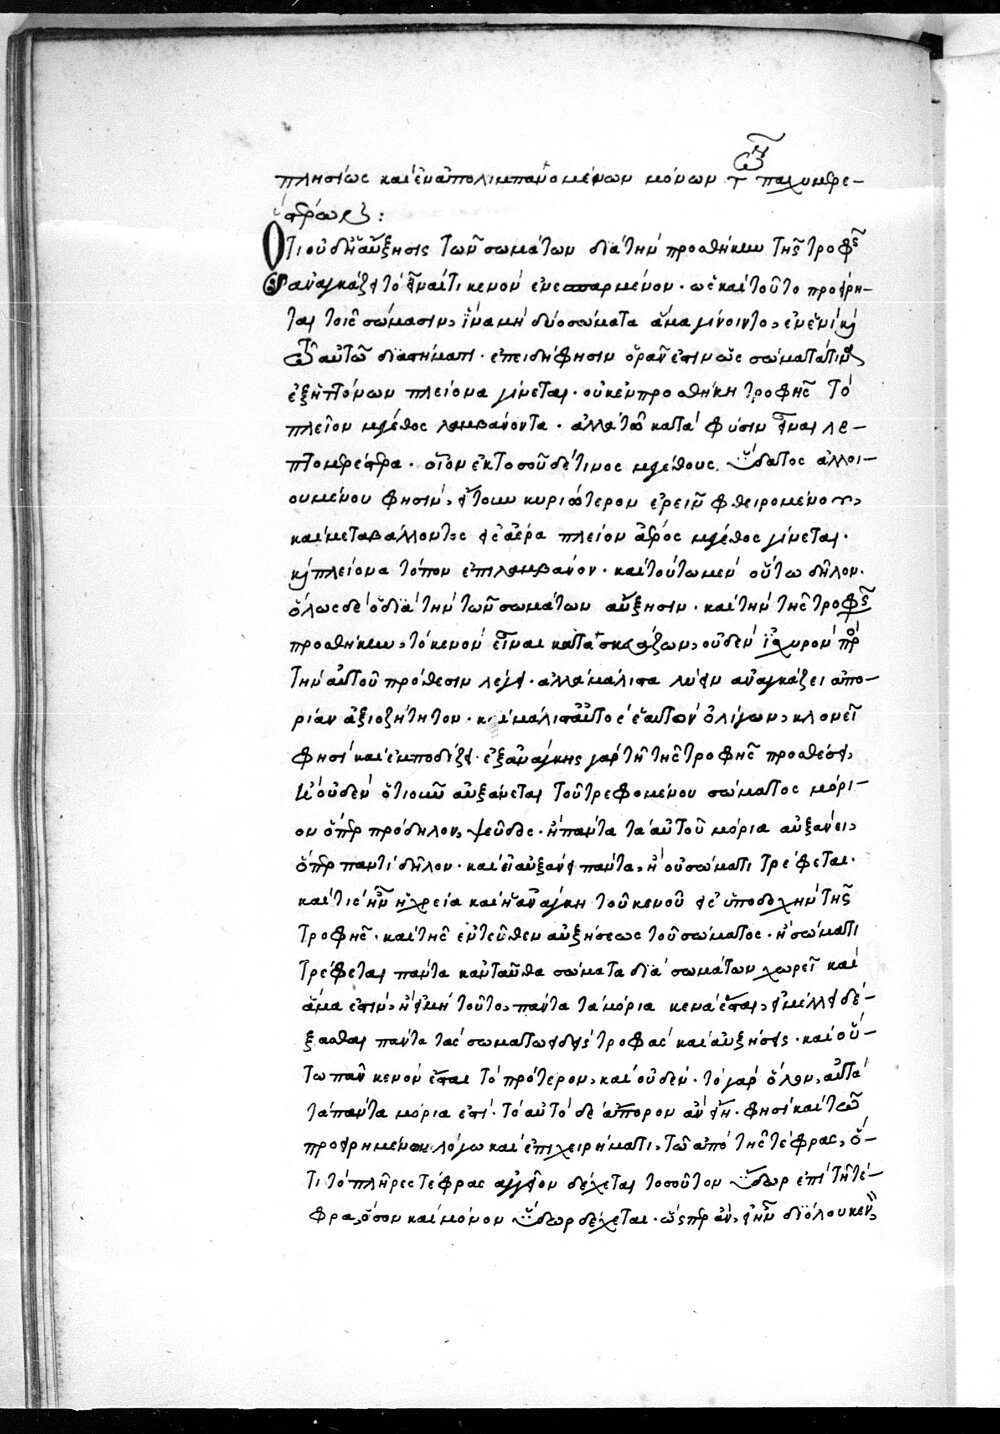 πλησίως καὶ ἐναπολιμπανομένων μόνων τῶν παχυμερε-
στέρων:
Ὅτι οὐδὲ ἡ αὔξησις τῶν σωμάτων διὰ τὴν προσθήκην τῆς τροφῆς
ἀναγκάζει τὸ εἶναί τι κενὸν ἐνεσπαρμένον. ὡς καὶ τοῦτο προείρη-
ται τοῖς σώμασιν, ἵνα μὴ δύο σώματα ἅμα γίνοιντο, ἐν ἑνὶ καὶ
τῷ αὐτῷ διαστήματι. ἐπειδή φησιν ὁρᾶν ἔστιν ὡς σώματά τινα
ἐξ ἡττόνων πλείονα γίνεται. οὐκ ἐν προσθήκῃ τροφῆς τὸ
πλεῖον μέγεθος λαμβάνοντα. ἀλλὰ τῷ κατὰ φύσιν εἶναι λε-
πτομερέστερα. οἷον ἐκ τοσοῦδέ τινος μεγέθους ὕδατος ἀλλοι-
ουμένου φησίν, ἤτοι κυριώτερον ἐρεῖν φθειρομένου,
καὶ μεταβάλλοντος εἰς ἀέρα πλεῖον ἀέρος μέγεθος γίνεται.
καὶ πλείονα τόπον ἐπιλαμβάνον. καὶ τοῦτο μὲν οὕτω δῆλον.
ὅλως δὲ ὁ διὰ τὴν τῶν σωμάτων αὔξησιν. καὶ τὴν τῆς τροφῆς
προσθήκην, τὸ κενὸν εἶναι κατασκευάζων, οὐδὲν ἰσχυρὸν πρὸς
τὴν αὐτοῦ πρόθεσιν λέγει. ἀλλὰ μάλιστα λύειν ἀναγκάζει ἀπο-
ρίαν ἀξιοζήτητον. καὶ μάλιστα αὐτὸς ἑαυτὸν ὀλίγων, κλονεῖ
φησὶ καὶ ἐμποδίζει. ἐξ ἀνάγκης γὰρ τῇ τῆς τροφῆς προσθέσει,
ἢ οὐδὲν ὁτιοῦν αὐξάνεται τοῦ τρεφομένου σώματος μόρι-
ον ὅπερ πρόδηλον, ψεῦδος. ἢ πάντα τὰ αὐτοῦ μόρια αὐξάνει,
ὅπερ παντὶ δῆλον. καὶ εἰ αὐξάνει πάντα, ἢ οὐ σώματι τρέφεται.
καὶ τίς ἦν ἡ χρεία καὶ ἡ ἀνάγκη τοῦ κενοῦ εἰς ὑποδοχὴν τῆς
τροφῆς. καὶ τῆς ἐντεῦθεν αὐξήσεως τοῦ σώματος. ἢ σώματι
τρέφεται πάντα κἀνταῦθα σώματα διὰ σωμάτων χωρεῖ καὶ
ἅμα ἐστίν, ἢ εἰ μὴ τοῦτο, πάντα τὰ μόρια κενὰ ἔσται, εἰ μέλλει δέ-
ξασθαι πάντα τὰς σωματώδεις τροφὰς καὶ αὐξήσεις. καὶ οὕ-
τω πᾶν κενὸν ἔσται τὸ πρότερον, καὶ οὐδέν. τὸ γὰρ ὅλον, αὐτὰ
τὰ πάντα μόρια ἐστί. τὸ αὐτὸ δὲ ἄπορον ἂν εἴη. φησὶ καὶ τῷ
προειρημένῳ λόγῳ καὶ ἐπιχειρήματι, τῷ ἀπὸ τῆς τέφρας, ὅ-
τι τὸ πλῆρες τέφρας ἀγγεῖον δέχεται τοσοῦτον ὕδωρ ἐπὶ τῇ τέ-
φρᾳ, ὅσον καὶ μόνον ὕδωρ δέχεται. ὥσπερ ἄν, εἰ ἦν διόλου κενὸν,